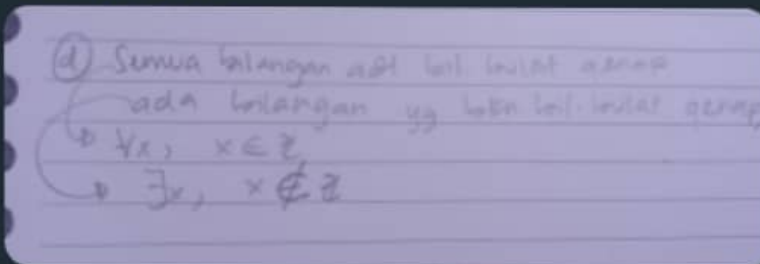 (d) Semua bilangan adl bil. bulat genap
ada bilangan yg bkn bil. bulat genap
∀x, x ∈ Z
∃x, x ∉ Z